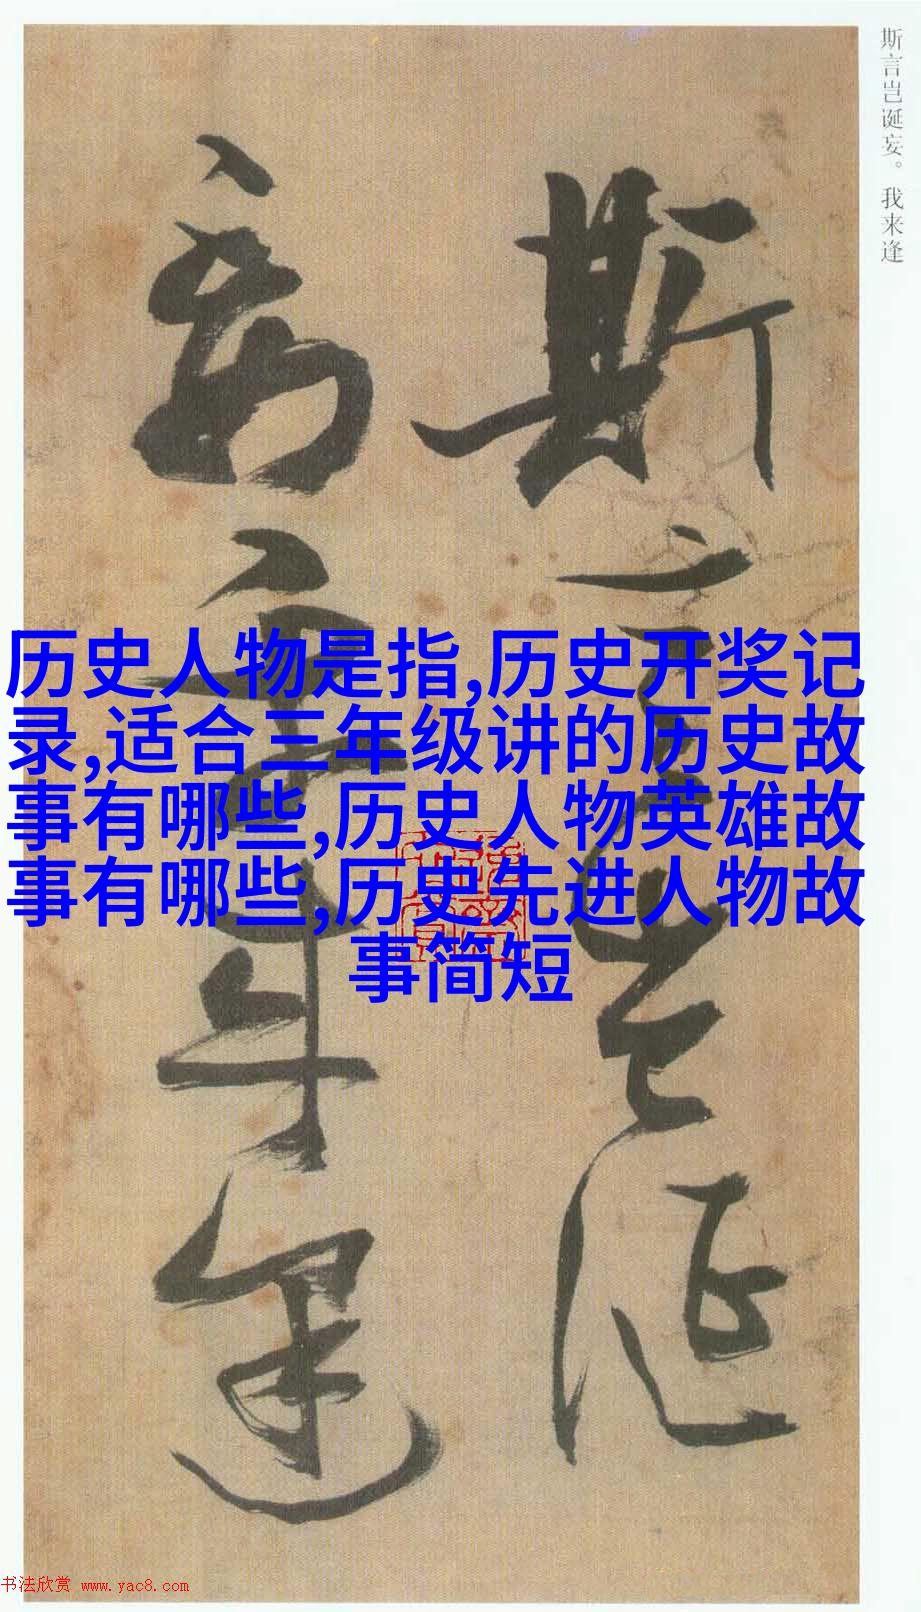 斯言岂诞妄。我来逢
斯言豈誕
妄我來逢
历史人物是指,历史开奖记
录,适合三年级讲的历史故
事有哪些,历史人物英雄故
事有哪些,历史先进人物故
事简短
书法欣赏 www.yac8.com